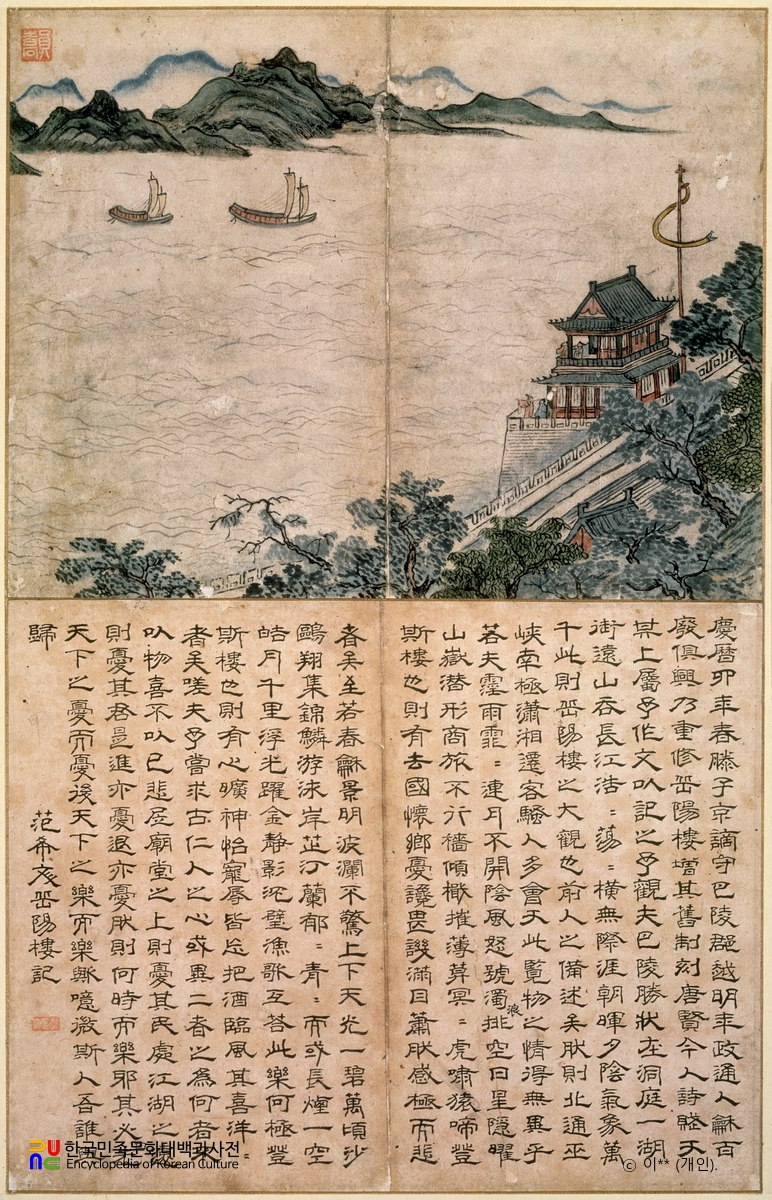 慶曆四年春滕子京謫守巴陵郡越明年政通人龢百
廢俱興乃重修岳陽樓增其舊制刻唐賢今人詩賦于
其上屬予作文以記之予觀夫巴陵勝狀在洞庭一湖
銜遠山吞長江浩〻蕩〻橫無際涯朝暉夕陰氣象萬
千此則岳陽樓之大觀也前人之備述矣然則北通巫
峽南極瀟湘遷客騷人多會于此覽物之情得無異乎
若夫霪雨霏〻連月不開陰風怒號濁浪排空日星隱曜
山嶽潛形商旅不行檣傾檝摧薄暮冥〻虎嘯猿啼登
斯樓也則有去國懷鄉憂讒畏譏滿目蕭然感極而悲
者矣至若春龢景明波瀾不驚上下天光一碧萬頃沙
鷗翔集錦鱗游泳岸芷汀蘭郁〻青〻而或長煙一空
皓月千里浮光躍金靜影沉璧漁歌互答此樂何極登
斯樓也則有心曠神怡寵辱皆忘把酒臨風其喜洋〻
者矣嗟夫予嘗求古仁人之心或異二者之為何者不
以物喜不以己悲居廟堂之上則憂其民處江湖之遠
則憂其君是進亦憂退亦憂然則何時而樂耶其必先
天下之憂而憂後天下之樂而樂歟噫微斯人吾誰與
歸
范希文岳陽樓記
한국민족문화대백과사전
Encyclopedia of Korean Culture
© 이** (개인).